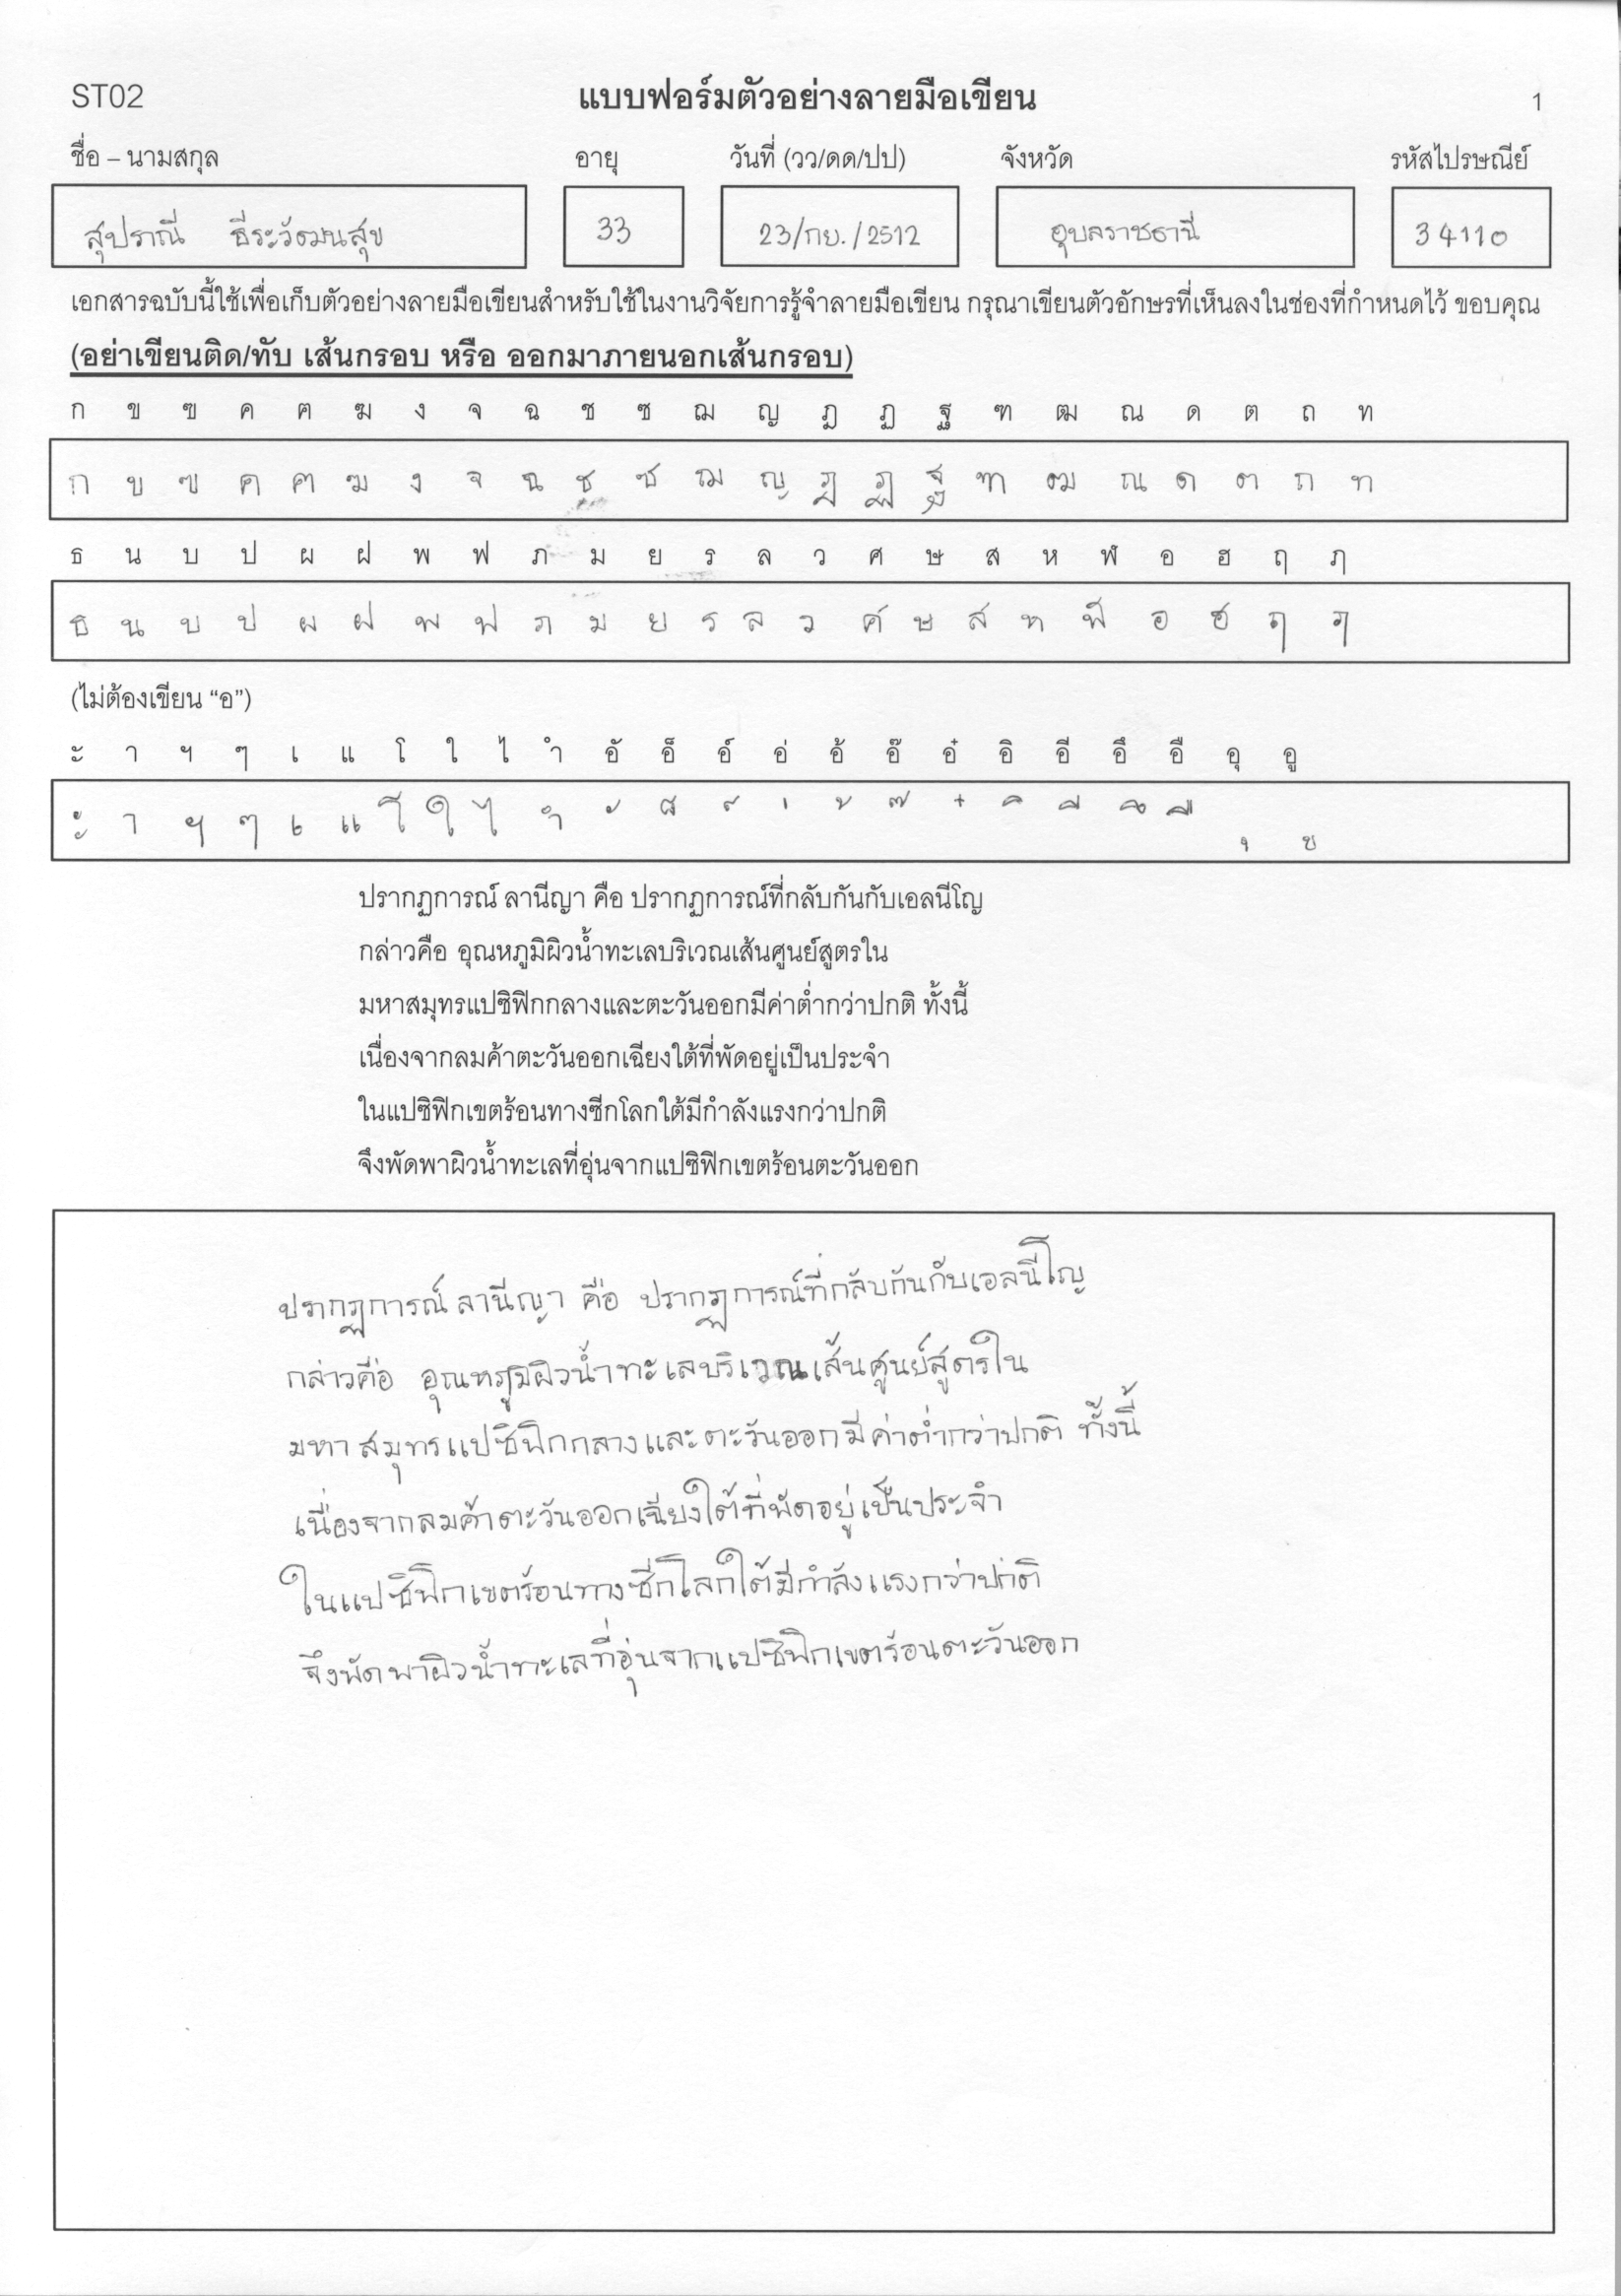 ST02 แบบฟอร์มตัวอย่างลายมือเขียน 1
ชื่อ – นามสกุล อายุ วันที่ (วว/ดด/ปป) จังหวัด รหัสไปรษณีย์
สุปราณี ธีระวัฒนสุข 33 23/กย./2512 อุบลราชธานี 34110
เอกสารฉบับนี้ใช้เพื่อเก็บตัวอย่างลายมือเขียนสำหรับใช้ในงานวิจัยการรู้จำลายมือเขียน กรุณาเขียนตัวอักษรที่เห็นลงในช่องที่กำหนดไว้ ขอบคุณ
(อย่าเขียนติด/ทับ เส้นกรอบ หรือ ออกมาภายนอกเส้นกรอบ)
ก ข ฃ ค ฅ ฆ ง จ ฉ ช ซ ฌ ญ ฎ ฏ ฐ ฑ ฒ ณ ด ต ถ ท
ก ข ฃ ค ฅ ฆ ง จ ฉ ช ซ ฌ ญ ฎ ฏ ฐ ฑ ฒ ณ ด ต ถ ท
ธ น บ ป ผ ฝ พ ฟ ภ ม ย ร ล ว ศ ษ ส ห ฬ อ ฮ ฤ ฦ
ธ น บ ป ผ ฝ พ ฟ ภ ม ย ร ล ว ศ ษ ส ห ฬ อ ฮ ฤ ฦ
(ไม่ต้องเขียน “อ”)
ะ า ฯ ๆ เ แ โ ใ ไ ำ อั อ็ อ์ อ่ อ้ อ๊ อ๋ อิ อี อึ อื อุ อู
ะ า ฯ ๆ เ แ โ ใ ไ ำ ั ็ ์ ่ ้ ๊ ๋ ิ ี ึ ื ุ ู
ปรากฏการณ์ ลานีญา คือ ปรากฏการณ์ที่กลับกันกับเอลนีโญ
กล่าวคือ อุณหภูมิผิวน้ำทะเลบริเวณเส้นศูนย์สูตรใน
มหาสมุทรแปซิฟิกกลางและตะวันออกมีค่าต่ำกว่าปกติ ทั้งนี้
เนื่องจากลมค้าตะวันออกเฉียงใต้ที่พัดอยู่เป็นประจำ
ในแปซิฟิกเขตร้อนทางซีกโลกใต้มีกำลังแรงกว่าปกติ
จึงพัดพาผิวน้ำทะเลที่อุ่นจากแปซิฟิกเขตร้อนตะวันออก
ปรากฏการณ์ ลานีญา คือ ปรากฏการณ์ที่กลับกันกับเอลนีโญ
กล่าวคือ อุณหภูมิผิวน้ำทะเลบริเวณเส้นศูนย์สูตรใน
มหาสมุทรแปซิฟิกกลางและตะวันออกมีค่าต่ำกว่าปกติ ทั้งนี้
เนื่องจากลมค้าตะวันออกเฉียงใต้ที่พัดอยู่เป็นประจำ
ในแปซิฟิกเขตร้อนทางซีกโลกใต้มีกำลังแรงกว่าปกติ
จึงพัดพาผิวน้ำทะเลที่อุ่นจากแปซิฟิกเขตร้อนตะวันออก